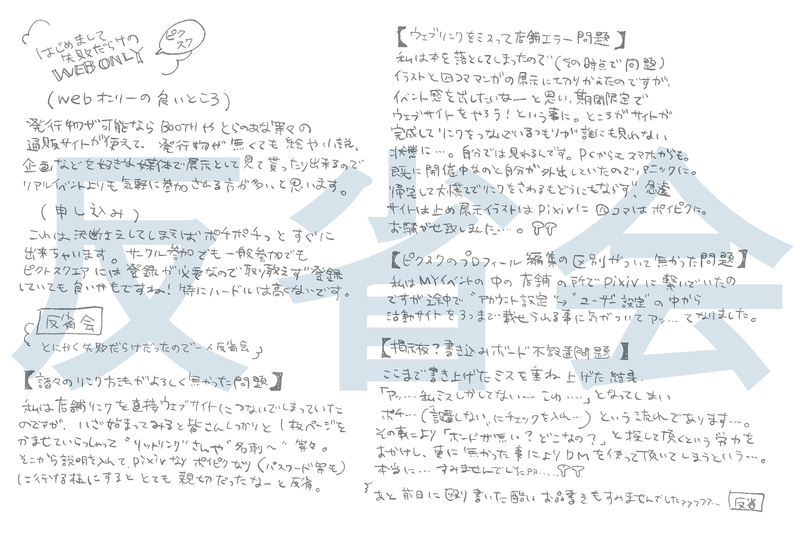 はじめまして
失敗だらけの
WEB ONLY
ピク
スク
(webオンリーの良いところ)
発行物が可能ならBOOTHやとらのあな等々の
通販サイトが使えて、発行物が無くても絵や小説、
企画などを好きな媒体で展示として見て貰ったり出来るので
リアルイベントよりも気軽に参加される方が多いと思います。
(申し込み)
これは決断さえしてしまえばポチポチっとすぐに
出来ちゃいます。サークル参加でも一般参加でも
ピクトスクエアには登録が必要なので取り敢えず登録
していても良いかもですね!特にハードルは高くないです。
反省会
とにかく失敗だらけだったので一人反省会
【諸々のリンク方法がよろしく無かった問題】
私は店舗リンクを直接ウェブサイトにつないでしまっていた
のですが、いざ始まってみると皆さんしっかりと1枚ページを
かませていらっしゃって
そこから説明を入れて、pixivなりポイピクなり(パスワード等も)
に行ける様にするととても親切だったなーと反省。
【ウェブリンクをミスって店舗エラー問題】
私は本を落としてしまったので(その時点で問題)
イラストと四コママンガの展示に切りかえたのですが、
イベント感を出したいなーと思い、期間限定で
ウェブサイトをやろう!という事に。ところがサイトが
完成してリンクをつないでいるつもりが誰にも見れない
状態に…。自分では見れるんです。PCからもスマホからも。
既に開催中なのと自分が外出していたのでパニックに。
帰宅して大慌てでリンクをさわるもどうにもならず、急遽
サイトは止め展示イラストはpixivに四コマはポイピクに。
お騒がせ致しました…。
【ピクスクのプロフィール編集の区別がついて無かった問題】
私はMYイベントの中の店舗の所でpixivに繋いでいたの
ですが途中で"アカウント設定"→"ユーザ設定"の中から
活動サイトを3つまで載せられる事に気がついてアッ…てなりました。
【掲示板?書き込みボード不設置問題】
ここまで書き上げたミスを重ね上げた結果、
「アッ…私ミスしかしてない…こわ…」となってしまい
ポチ…(設置しない、にチェックを入れ…)という流れであります…。
その事により「ボードが無い?どこなの?」と探して頂くという労力を
おかけし、更に無かった事によりDMを使って頂いてしまうという…。
本当に…すみませんでした
あと前日に殴り書いた酷いお品書きもすみませんでした
反省
反省会